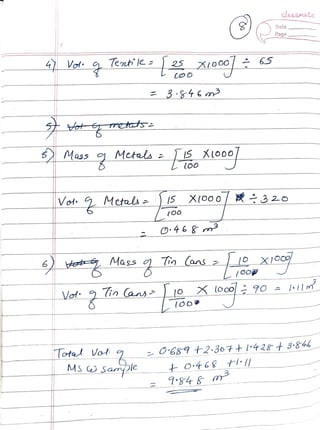 classmate
Date
Page
8
4) Vol. of Textile = [25/100 X1000] ÷ 65
= 3.846 m³
5) Vol of metals =
5) Mass of Metals = [15/100 X1000]
Vol. of Metals = [15/100 X1000] ÷ 320
= 0.468 m³
6) Vol of Mass of Tin Cans = [10/100 X 1000]
Vol. of Tin Cans = [10/100 X 1000] ÷ 90 = 1.11m³
Total Vol of = 0.689 + 2.307 + 1.428 + 3.846
MSW sample + 0.468 + 1.11
= 9.848 m³